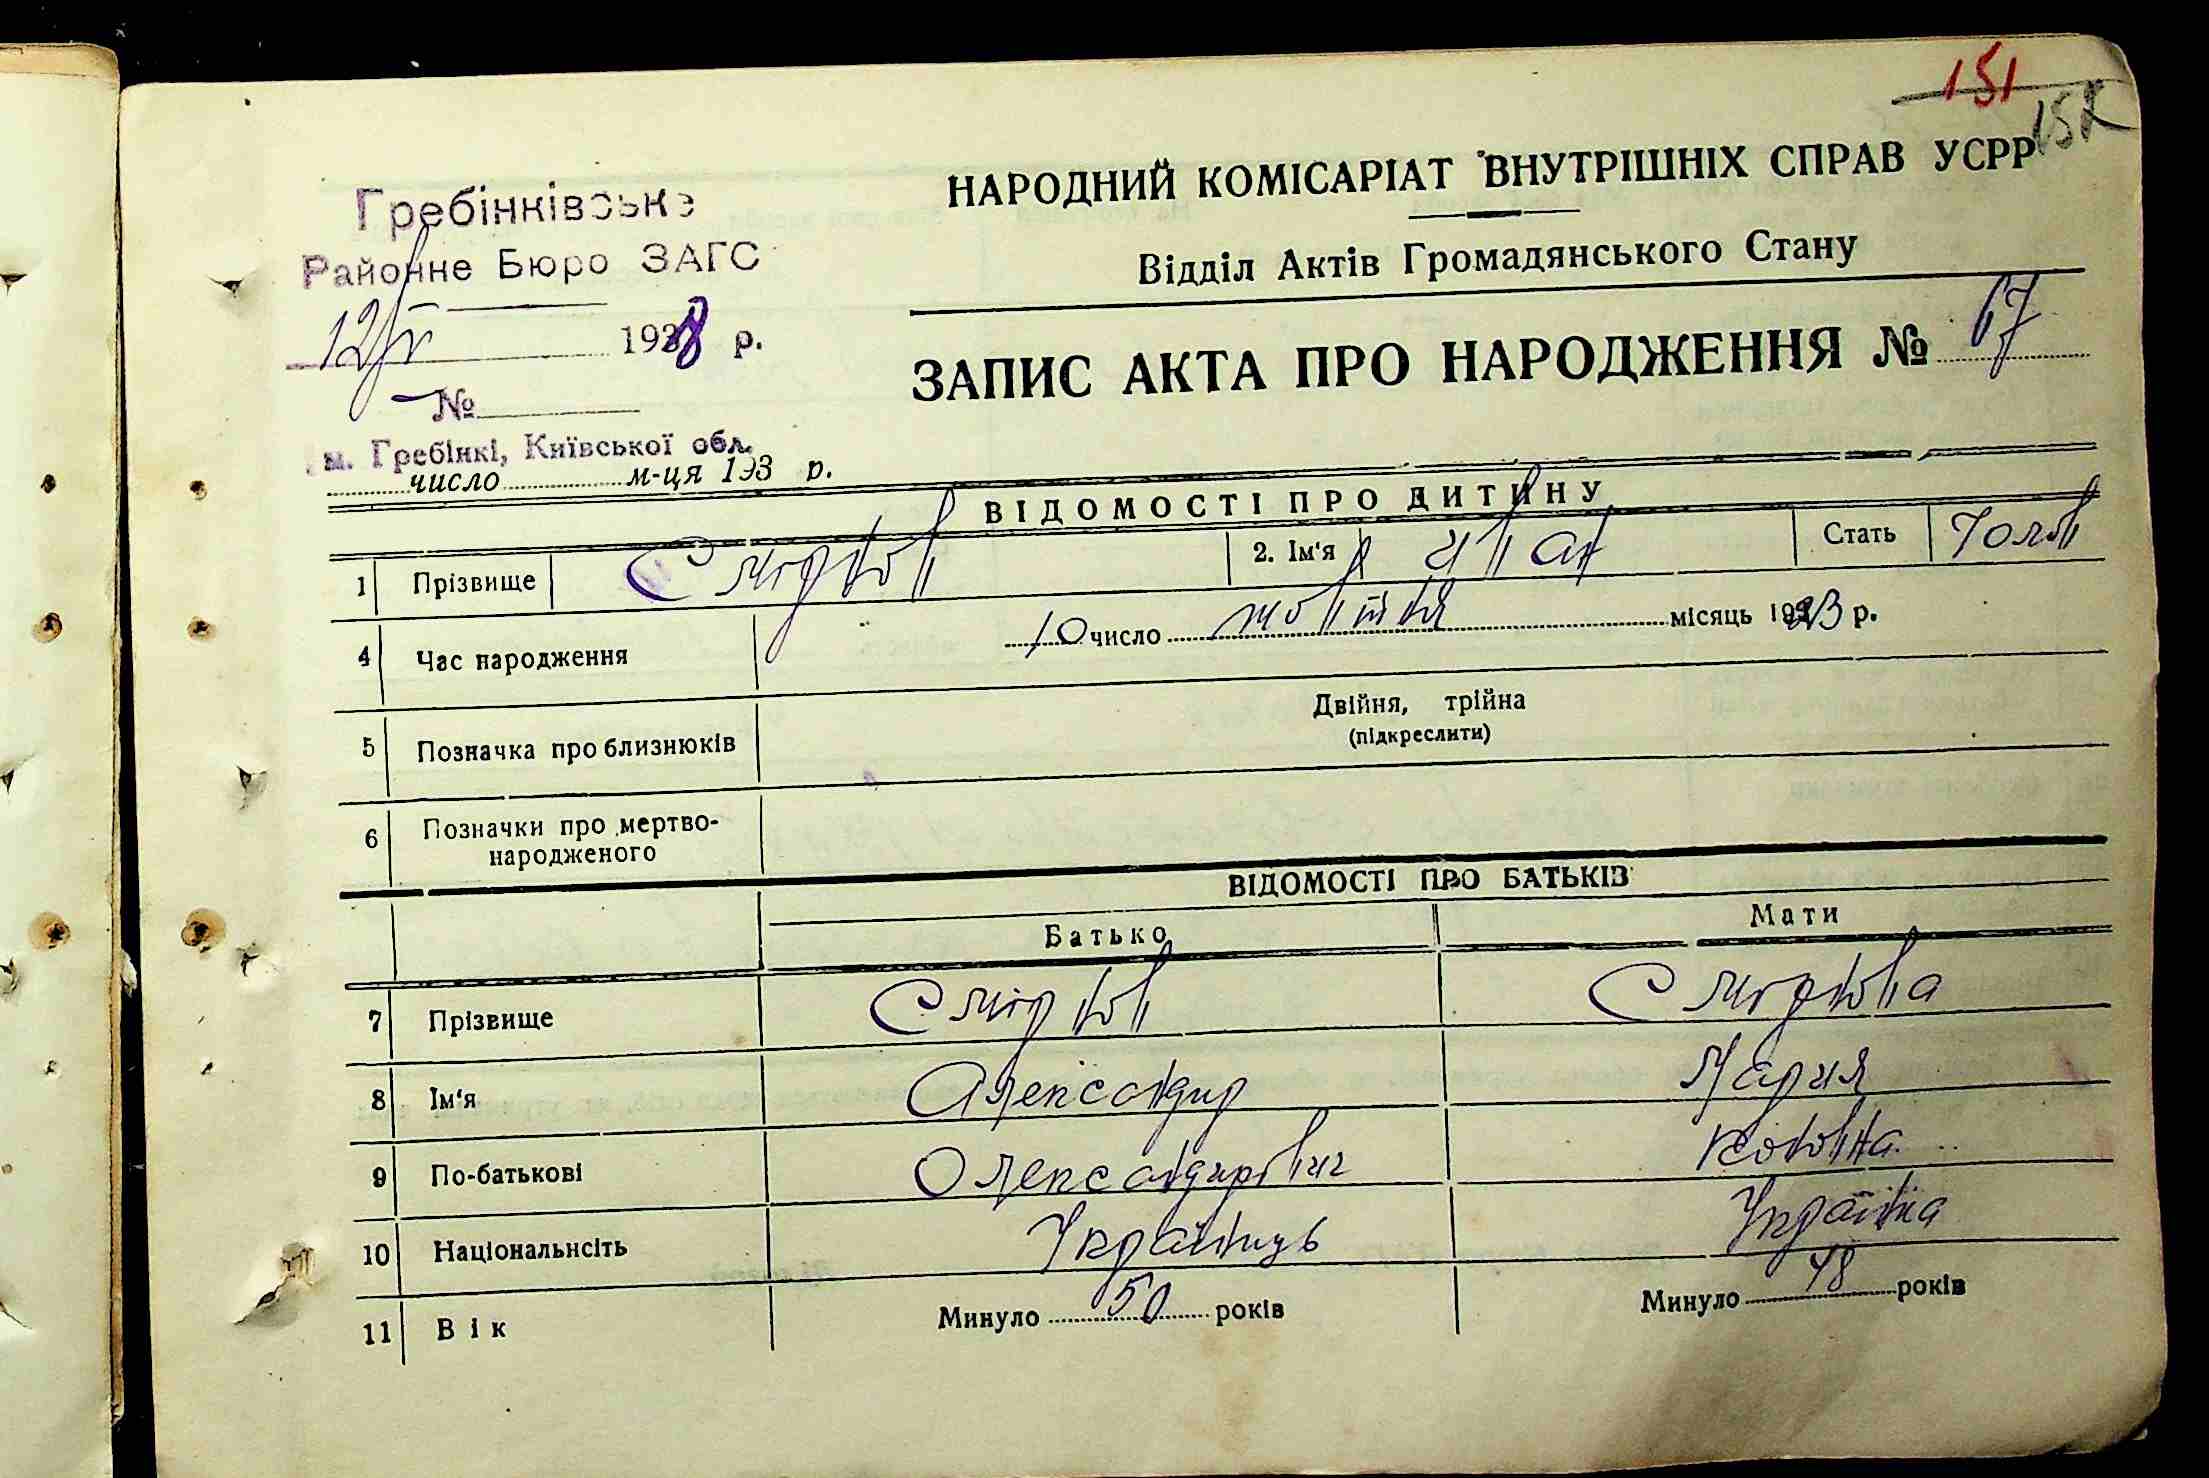 151
152
НАРОДНИЙ КОМІСАРІАТ ВНУТРІШНІХ СПРАВ УСРР
Відділ Актів Громадянського Стану
Гребінківське
Районне Бюро ЗАГС
12/V 1938 р.
№
м. Гребінкі, Київської обл.
число м-ця 193 р.
ЗАПИС АКТА ПРО НАРОДЖЕННЯ № 67
ВІДОМОСТІ ПРО ДИТИНУ
1 Прізвище Смірнов 2. Ім'я Іван Стать чолов
4 Час народження 10 число жовтня місяць 1923 р.
5 Позначка про близнюків Двійня, трійна
(підкреслити)
6 Позначки про мертво-
народженого
ВІДОМОСТІ ПРО БАТЬКІВ
Батько Мати
7 Прізвище Смірнов Смірнова
8 Ім'я Олександир Мария
9 По-батькові Олександирович
10 Національнсіть Українць Українка
11 Вік Минуло 50 років Минуло 48 років